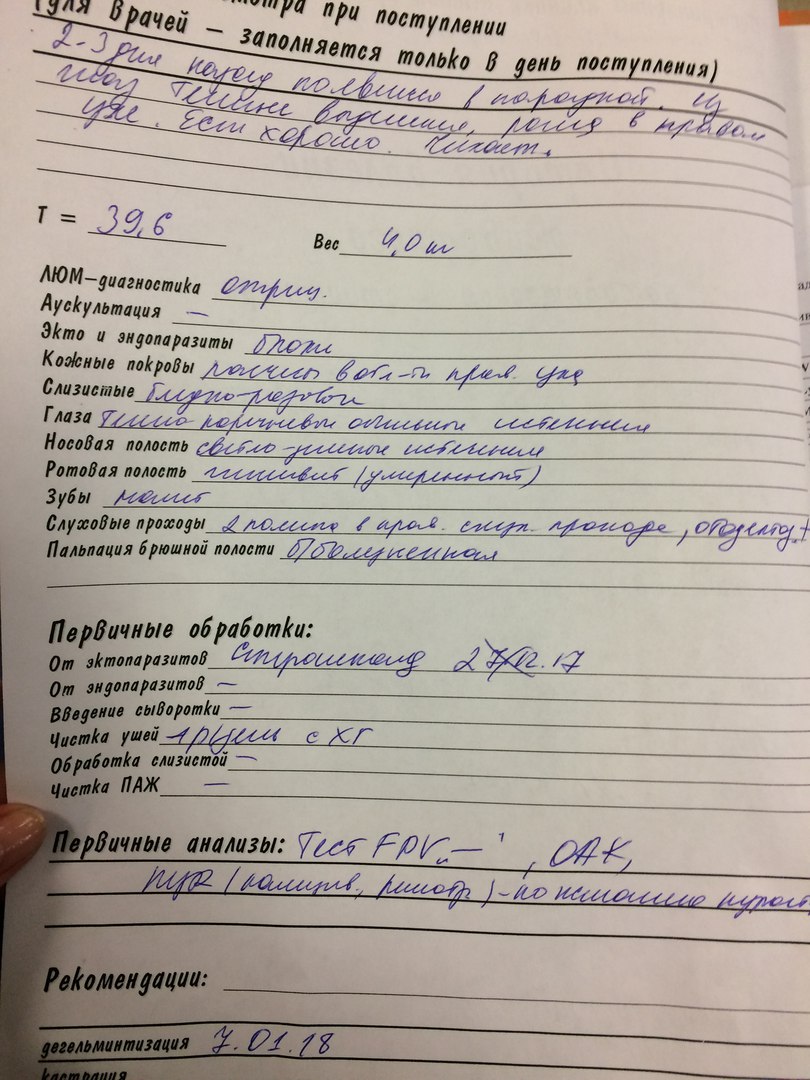 осмотра при поступлении
(для врачей – заполняется только в день поступления)
2-3 дня назад появился в парадной. Из
глаз темные выделения, ранка в правом
ухе. Ест хорошо. Чихает.
Т = 39,6
Вес 4,0 кг
ЛЮМ–диагностика отриц.
Аускультация —
Экто и эндопаразиты блохи
Кожные покровы расчесы в обл-ти прав. уха
Слизистые бледно-розовые
Глаза темно коричневые обильные истечения
Носовая полость светло-зеленые истечения
Ротовая полость гингивит (умеренный)
Зубы налет
Слуховые проходы 2 полипа в прав. слух. проходе, отодектоз +
Пальпация брюшной полости б/болезненная
Первичные обработки:
От эктопаразитов Стронгхолд 27.12.17
От эндопаразитов —
Введение сыворотки —
Чистка ушей с ХГ
Обработка слизистой —
Чистка ПАЖ —
Первичные анализы: Тест FPV „—", ОАК,
ПЦР (калицив., ринотр.) - по желанию курат
Рекомендации:
дегельминтизация 7.01.18
кастрация